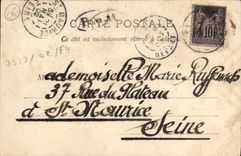 06
CARTE POSTALE
Ce côté est exclusivement réservé à l'adresse
7513/02/F4
10
Mademoiselle Marie Ruffenach
37 Rue du Plateau
à St Maurice
Seine